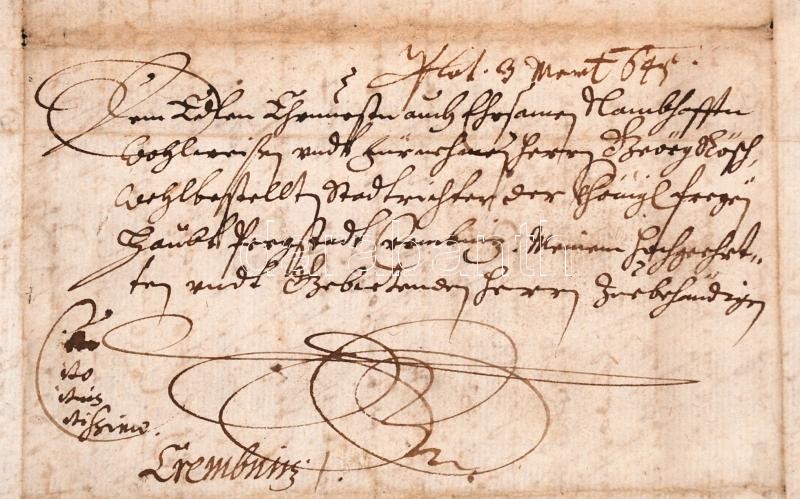 Plat. 3 Mert 645.
Dem Edlen Ehrnuestn auch Ehrsamen Nambhafftn
Wohlweisen vndt Fürnehmen Herrn Georg Rösch,
Wohlbestellten Stadtrichter der Königl freyen
Haubt Pergstadt Crembnitz. Meinem Hochgeehrt„
ten vndt Gebietenden Herrn Zuebehändigen
darabanth
Cito
ito
itus
itissime.
Crembnitz.